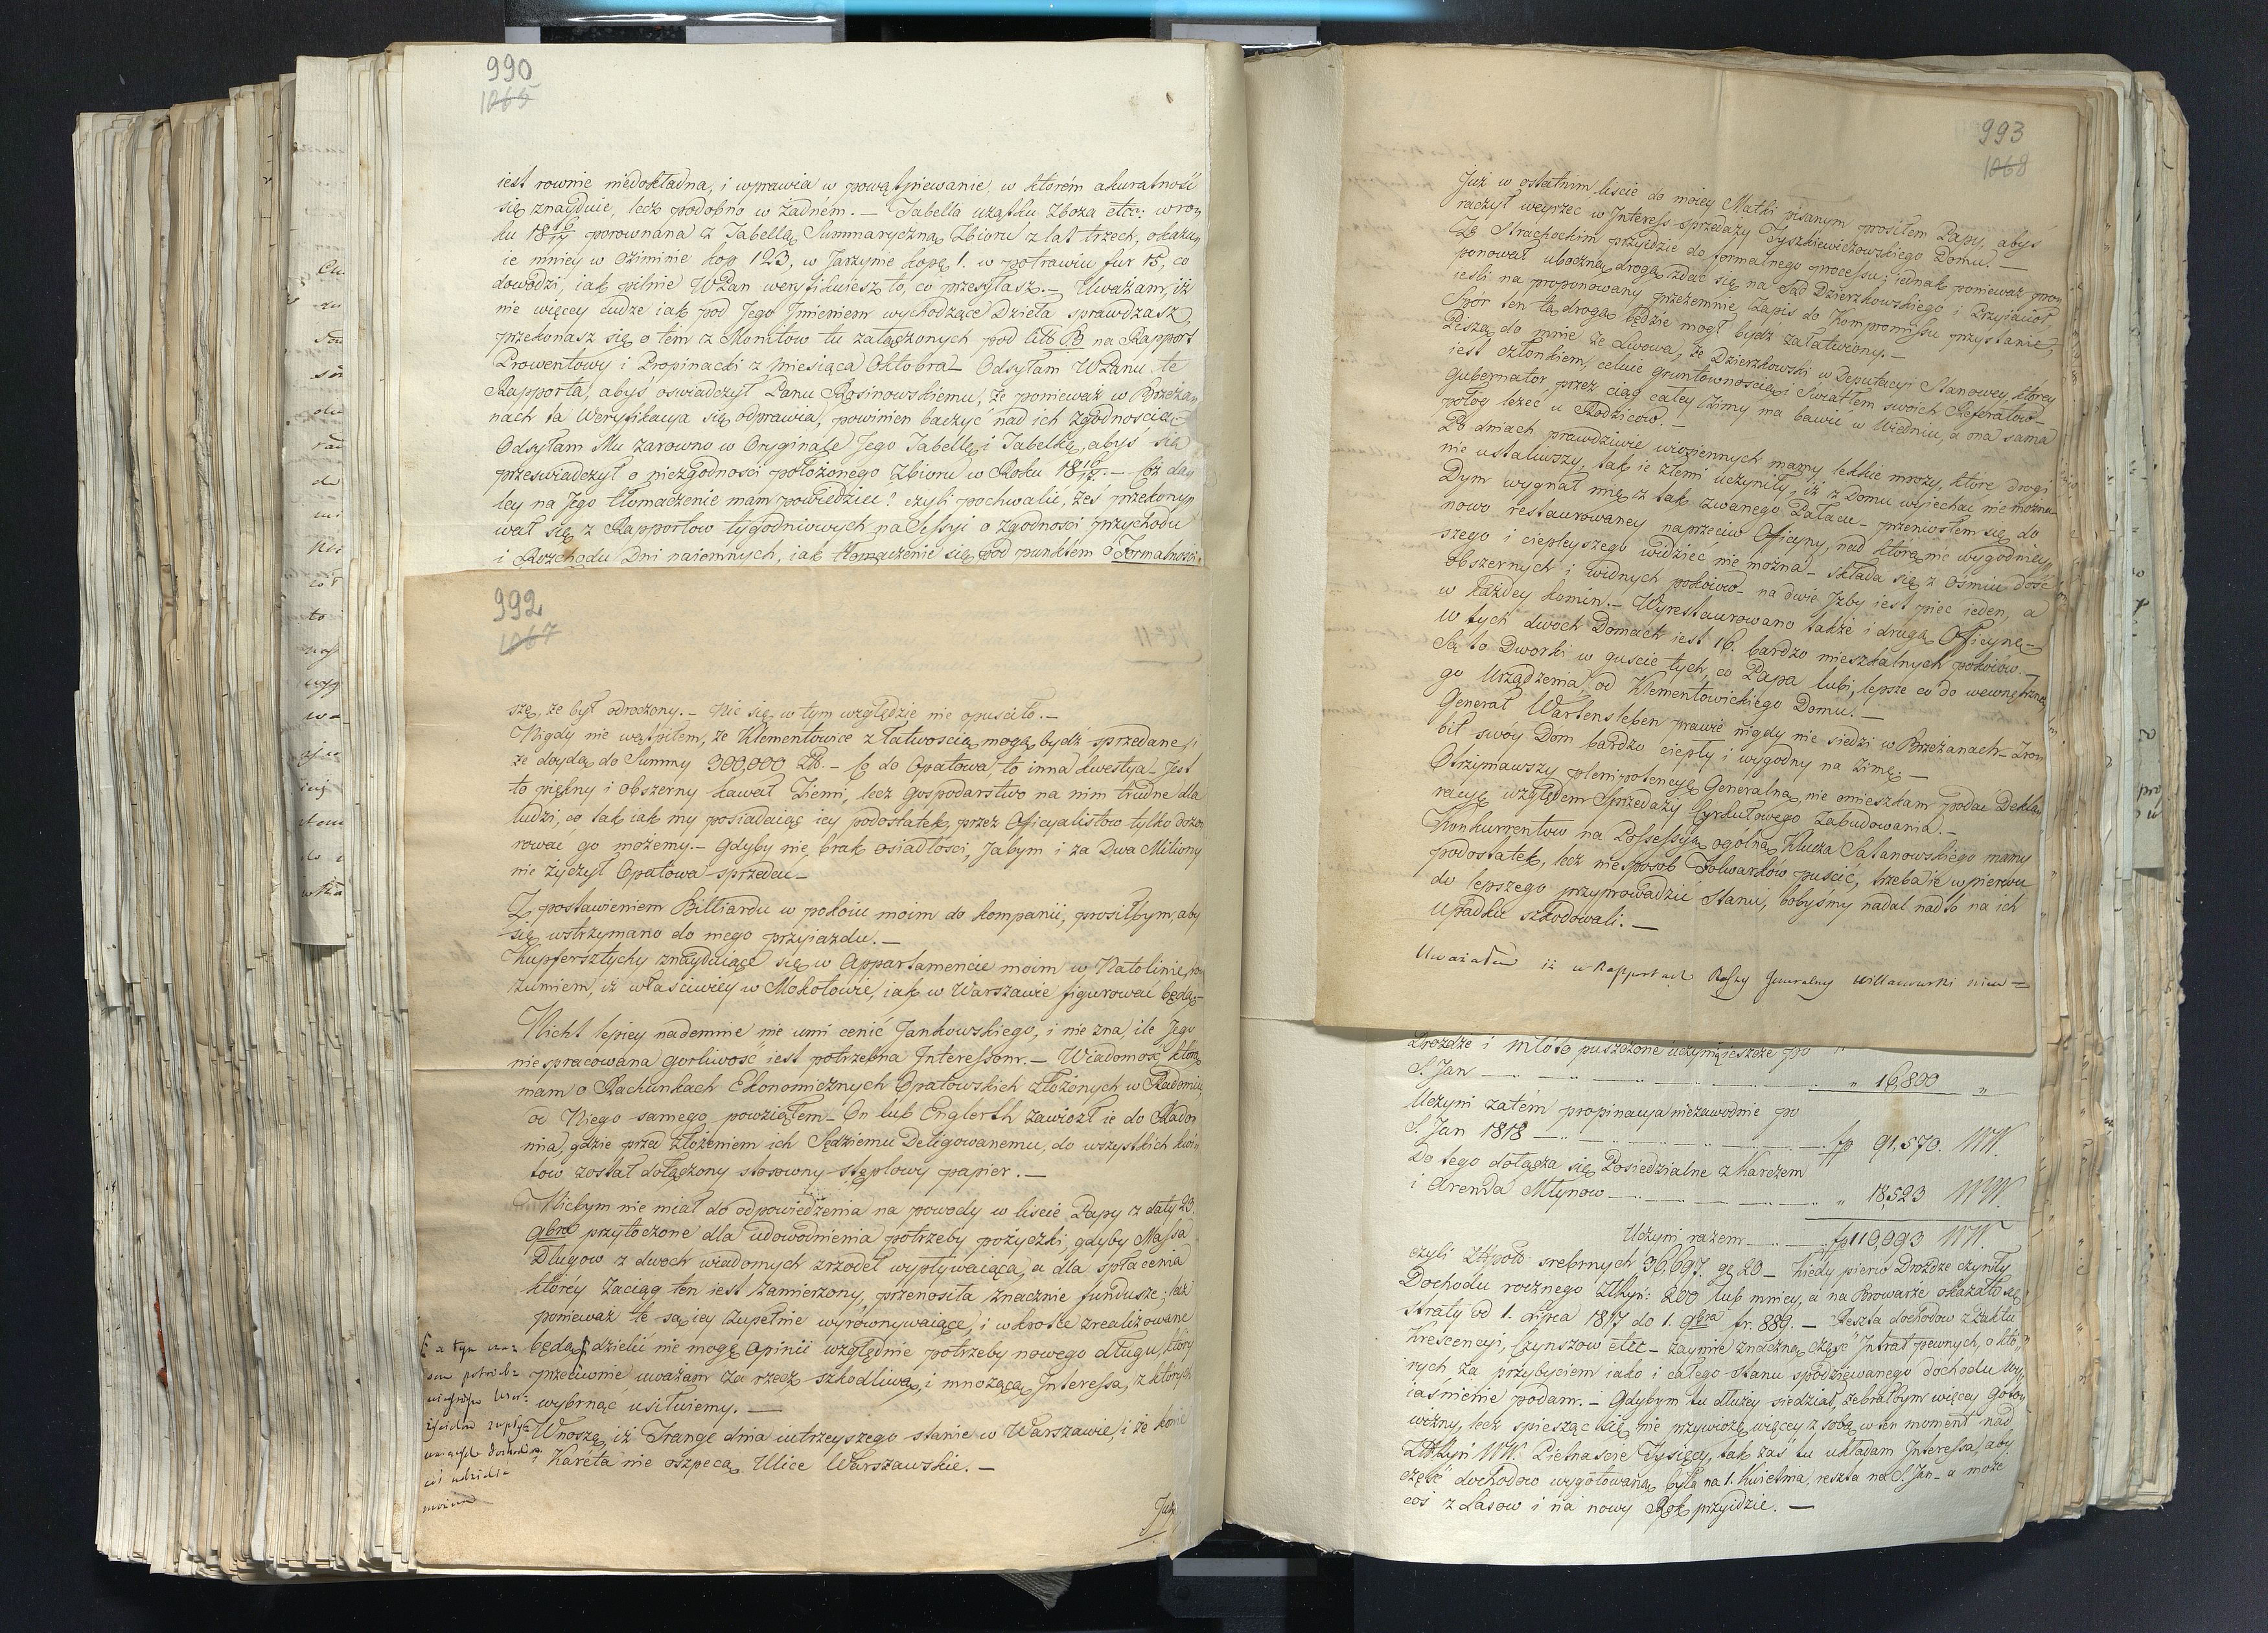 990
1065
iest rownie niedokładna, i wprawia w powątpiewanie, w którém akuratność
się znayduie, lecz podobno w żadném. — Tabella użątku Zboża etc: w ro„
ku 18 16/17 porownana z Tabellą Summaryczną Zbioru z lat trzech, okazu„
ie mniey w Oziminie kop 123, w Jarzynie kopę 1. w potrawiu fur 15, co
dowodzi, iak pilnie WPan weryfikuiesz to, co przesyłasz. — Uważam, iż
nie więcey cudze iak pod Jego Imieniem wychodzące Dzieła sprawdzasz,
przekonasz się o tém z Monitow tu załączonych pod litt B na Rapport
Prowentowy i Propinacki z Miesiąca Oktobra — Odsyłam WPanu te
Rapporta, abyś oswiadczył Panu Rosinowskiemu, że ponieważ w Brzeżan„
nach ta Weryfikacya się odprawia, powinien baczyć nad ich zgodnością —
Odsyłam Mu zarowno w Oryginale Jego Tabellę i Tabelkę, abyś się
przeswiadczył o niezgodności położonego Zbioru w Roku 18 16/17. — Cóż da„
ley na Jego tłomaczenie mam powiedzieć? czyli pochwalić, żeś przekony„
wał się z Rapportow tygodniowych na Sessyi o zgodności przychodu
i Rozchodu Dni naiemnych, iak tłomaczenie się pod punktem 6 Formalności.
992
1067
szę, że był odroczony. — Nic się w tym względzie nie opuściło. —
Nigdy nie wątpiłem, że Klementowice z łatwością mogą bydź sprzedane,
że doydą do Summy 300,000 Zł. — Co do Opatowa, to inna kwestya — Jest
to piękny i obszerny kawał Ziemi, lecz gospodarstwo na nim trudne dla
ludzi, co tak iak my posiadaiąc iey podostatek, przez Oficyalistow tylko dozo„
rować go możemy. — Gdyby nie brak osiadłości, Jabym i za Dwa Miliony
nie życzył Opatowa sprzedać —
Z postawieniem Billiardu w pokoiu moim do kompanii, prosiłbym, aby
się wstrzymano do mego przyiazdu. —
Kupfersztychy znayduiące się w Appartamencie moim w Natolinie, ro„
zumiem, iż właściwiey w Mokotowie, iak w Warszawie figurować będą —
Nicht lepiey nademnie nie umi cenić Jankowskiego, i nie zna, ile Jego
niespracowana gorliwość iest potrzebna Interessom. — Wiadomość, którą
mam o Rachunkach Ekonomicznych Opatowskich złożonych w Radomiu,
od Niego samego powziąłem — On lub Englerth zawiozł ie do Rado„
mia, gdzie przed złożeniem ich Sędziemu Delegowanemu, do wszystkich kwi„
tow został dołączony stosowny stęplowy papier. —
Nicbym nie miał do odpowiedzenia na powody w liście Papy z daty 23.
9bra przytoczone dla udowodnienia potrzeby pożyczki, gdyby Massa
Długow z dwoch wiadomych zrzodeł wypływaiąca, a dla spłacenia
którey zaciąg ten iest zamierzony, przenosiła znacznie fundusze; lecz
ponieważ te są iey zupełnie wyrównywaiące, i wkrotce zrealizowane
będą, dzielić nie mogę Opinii względnie potrzeby nowego długu, który
przeciwnie uważam za rzecz szkodliwą, i mnożącą Interessa, z których
wybrnąć usiłuiemy. —
Wnoszę, iż Trange dnia iutrzeyszego stanie w Warszawie, i że konie
i Karéta nie oszpecą Ulice Warszawskie. —
Już
993
1068
Już w ostatnim liście do moiey Matki pisanym prosiłem Papy, abyś
raczył weyrzeć w Interess sprzedaży Tyszkiewiczowskiego Domu. —
Ze Strachockim przyidzie do formalnego processu; iednak ponieważ pro„
ponował uboczną drogą zdać się na Sąd Dzierzkowskiego i Przyiacioł,
ieśli na proponowany przezemnie Zapis do Kompromissu przystanie,
Spór ten tą drogą będzie mogł bydź załatwiony. —
Piszą do mnie ze Lwowa, że Dzierzkowski w Deputacyi Stanowey, którey
iest członkiem, celuie gruntownością i Swiatłem swoich Referatow —
Gubernator przez ciąg całey Zimy ma bawić w Wiedniu, a ona sama
połog leżeć u Rodzicow. —
Po dniach prawdziwie wiosiennych mamy lekkie mrozy, które drogi
nie ustaliwszy, tak ie złemi uczyniły, iż z Domu wyiechać nie można
Dym wygnał mię z tak zwanego Pałacu — przeniosłem się do
nowo restaurowaney naprzeciw Oficyny, nad którą nic wygodniey„
szego i ciepleyszego widzieć nie można — składa się z Ośmiu dość
obszernych i widnych pokoiow — na dwie Izby iest piec ieden, a
w każdey komin. — Wyrestaurowano także i drugą Oficynę —
W tych dwoch Domach iest 16. bardzo mieszkalnych pokoiów. —
Są to Dworki w guscie tych, co Papa lubi, lepsze co do wewnętrzne„
go Urządzenia od Klementowickiego Domu. —
Generał Wartensleben prawie nigdy nie siedzi w Brzeżanach — Zro„
bił swóy Dom bardzo ciepły i wygodny na Zimę. —
Otrzymawszy plenipotencyę Generalną, nie omieszkam podać Dekla„
racyę względem Sprzedaży Cyrkułowego Zabudowania. —
Konkurrentow na Possessyą ogólną Klucza Satanowskiego mamy
podostatek, lecz niesposob Folwarków puscić, trzeba ie wpierw
do lepszego przyprowadzić Stanu, bobyśmy nadal nadto na ich
upadku szkodowali. —
Uważałem iż w Rapportach Kassy Generalney Willanowski
Drożdze i młóto puszczone uczynią ieszcze po
S. Jan — " 16,800 "
Uczyni zatem propinacya niezawodnie po
S. Jan 1818 — fr 91,570. WW.
Do tego dołącza się Posiedzialne z Karczem
i Arenda Młynow — " 18,523 WW.
Uczyni razem — fr 110,093 WW.
czyli ZłPol. srebrnych 36,697. gr 20 — kiedy pierw Drożdze czyniły
Dochodu rocznego ZłRyn: 200 lub mniey, a na Browarze okazało się
straty od 1. Lipca 1817 do 1. 9bra fr. 889. — Reszta dochodow z Zakłu
Krescencyi, Czynszow etc — zaymie znaczną część Intrat pewnych, o któ„
rych za przybyciem iako i całego stanu spodziewanego dochodu wy„
iaśnienie podam. — Gdybym tu dłużey siedział, zebrałbym więcey goto„
wizny, lecz spiesząc się, nie przywiozę więcey z sobą w ten moment nad
ZłRyń WW. Piętnascie Tysięcy, tak zaś tu układam Interessa, aby
część dochodow wygotowaną była na 1. Kwietnia, reszta na S. Jan — a może
coś z Lasow i na nowy Rok przyidzie. —